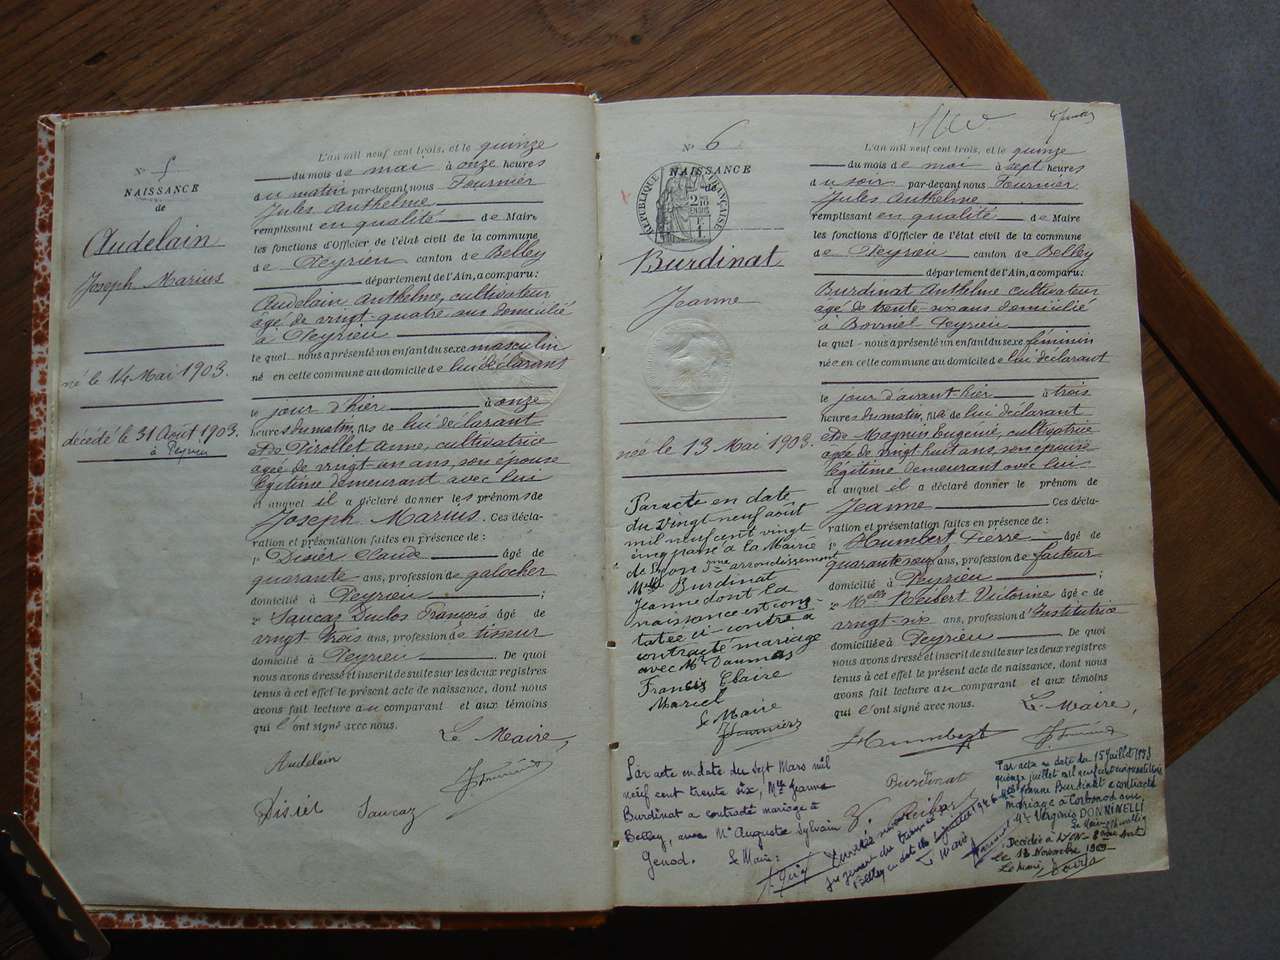 Nº 5
NAISSANCE
de
Audelain
Joseph Marius
né le 14 Mai 1903.
décédé le 31 Août 1903.
à Peyrieu
L'an mil neuf cent trois, et le quinze
du mois de mai à onze heures
du matin par-devant nous Fournier
Jules Anthelme
remplissant en qualité de Maire
les fonctions d'Officier de l'état civil de la commune
de Peyrieu canton de Belley
département de l'Ain, a comparu :
Audelain Anthelme, cultivateur
agé de vingt-quatre ans domicilié
à Peyrieu
lequel nous a présenté un enfant du sexe masculin
né en cette commune au domicile de lui déclarant
le jour d'hier à onze
heures du matin, fils de lui déclarant
et de Pirollet Anne, cultivatrice
agée de vingt un ans, son épouse
légitime demeurant avec lui
et auquel il a déclaré donner les prénoms de
Joseph Marius. Ces décla-
ration et présentation faites en présence de :
1º Disier Claude âgé de
quarante ans, profession de galocher
domicilié à Peyrieu ;
2º Saucaz Duclos François âgé de
vingt trois ans, profession de tisseur
domicilié à Peyrieu De quoi
nous avons dressé et inscrit de suite sur les deux registres
tenus à cet effet le présent acte de naissance, dont nous
avons fait lecture au comparant et aux témoins
qui l'ont signé avec nous.
Le Maire,
Audelain
Saucaz
Nº 6
NAISSANCE
de
RÉPUBLIQUE FRANÇAISE
Burdinat
Jeanne
née le 13 Mai 1903.
Par acte en date
du vingt neuf août
mil neuf cent vingt
cinq passé à la Mairie
de Lyon 3ème arrondissement
Mlle Burdinat
Jeanne dont la
naissance est cons-
tatée ci-contre a
contracté mariage
avec Mr Daumas
Francis Claire
Marcel
Le Maire
Fournier
Par acte en date du sept Mars mil
neuf cent trente six, Mme Jeanne
Burdinat a contracté mariage à
Belley, avec Mr Auguste Sylvain
Genod. Le Maire :
L'an mil neuf cent trois, et le quinze
du mois de mai à sept heures
du soir par-devant nous Fournier
Jules Anthelme
remplissant en qualité de Maire
les fonctions d'Officier de l'état civil de la commune
de Peyrieu canton de Belley
département de l'Ain, a comparu :
Burdinat Anthelme cultivateur
agé de trente-six ans domicilié
à Peyrieu
lequel nous a présenté un enfant du sexe féminin
née en cette commune au domicile de lui déclarant
le jour d'avant-hier à trois
heures du matin, fille de lui déclarant
et de Magnin Eugénie, cultivatrice
agée de vingt huit ans, son épouse
légitime demeurant avec lui
et auquel il a déclaré donner le prénom de
Jeanne Ces décla-
ration et présentation faites en présence de :
1º Humbert Pierre âgé de
quarante neuf ans, profession de facteur
domicilié à Peyrieu ;
2º Melle Reibert Victorine âgée de
vingt-six ans, profession d'Institutrice
domiciliée à Peyrieu De quoi
nous avons dressé et inscrit de suite sur les deux registres
tenus à cet effet le présent acte de naissance, dont nous
avons fait lecture au comparant et aux témoins
qui l'ont signé avec nous.
Le Maire,
Humbert
Burdinat
V. Reibert
jugement du
Belley en date du 1946
Le Maire
Par acte en date du 15 Juillet 1948
quinze juillet mil neuf cent quarante huit
Jeanne Burdinat a contracté
mariage à Corbonod avec
Mr Virginio DONNINELLI
Décédée à LYON 8ème Arrt
le 13 Novembre 1969
Le Maire,